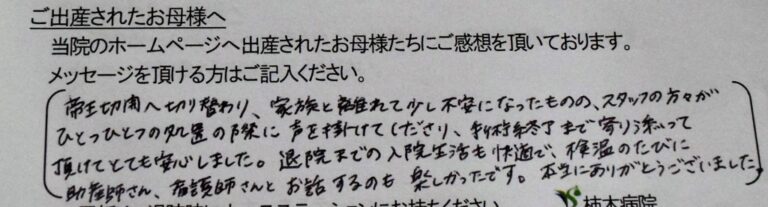 ご出産されたお母様へ
当院のホームページへ出産されたお母様たちにご感想を頂いております。
メッセージを頂ける方はご記入ください。
帝王切開へ切り替わり、家族と離れて少し不安になったものの、スタッフの方々が
ひとつひとつの処置の際に声を掛けてくださり、手術終了まで寄り添って
頂けてとても安心しました。退院までの入院生活も快適で、検温のたびに
助産師さん、看護師さんとお話するのも楽しかったです。本当にありがとうございました。
柿木病院